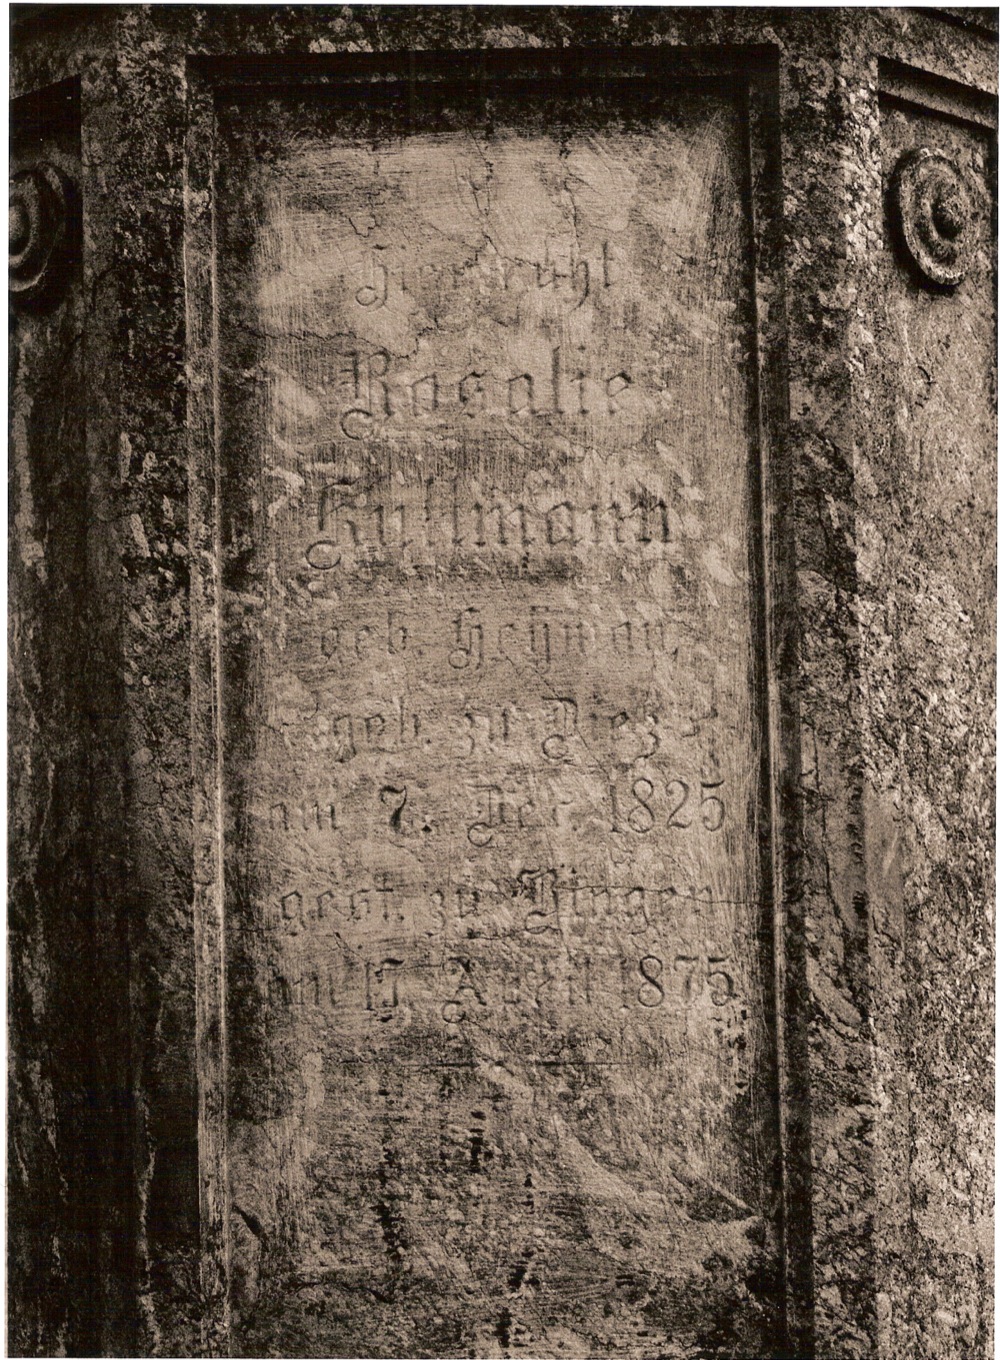 Hier ruht
Rosalie
Kullmann
geb. Heyman,
geb. zu Diez
am 7. Dez. 1825
gest. zu Bingen
am 17 April 1875